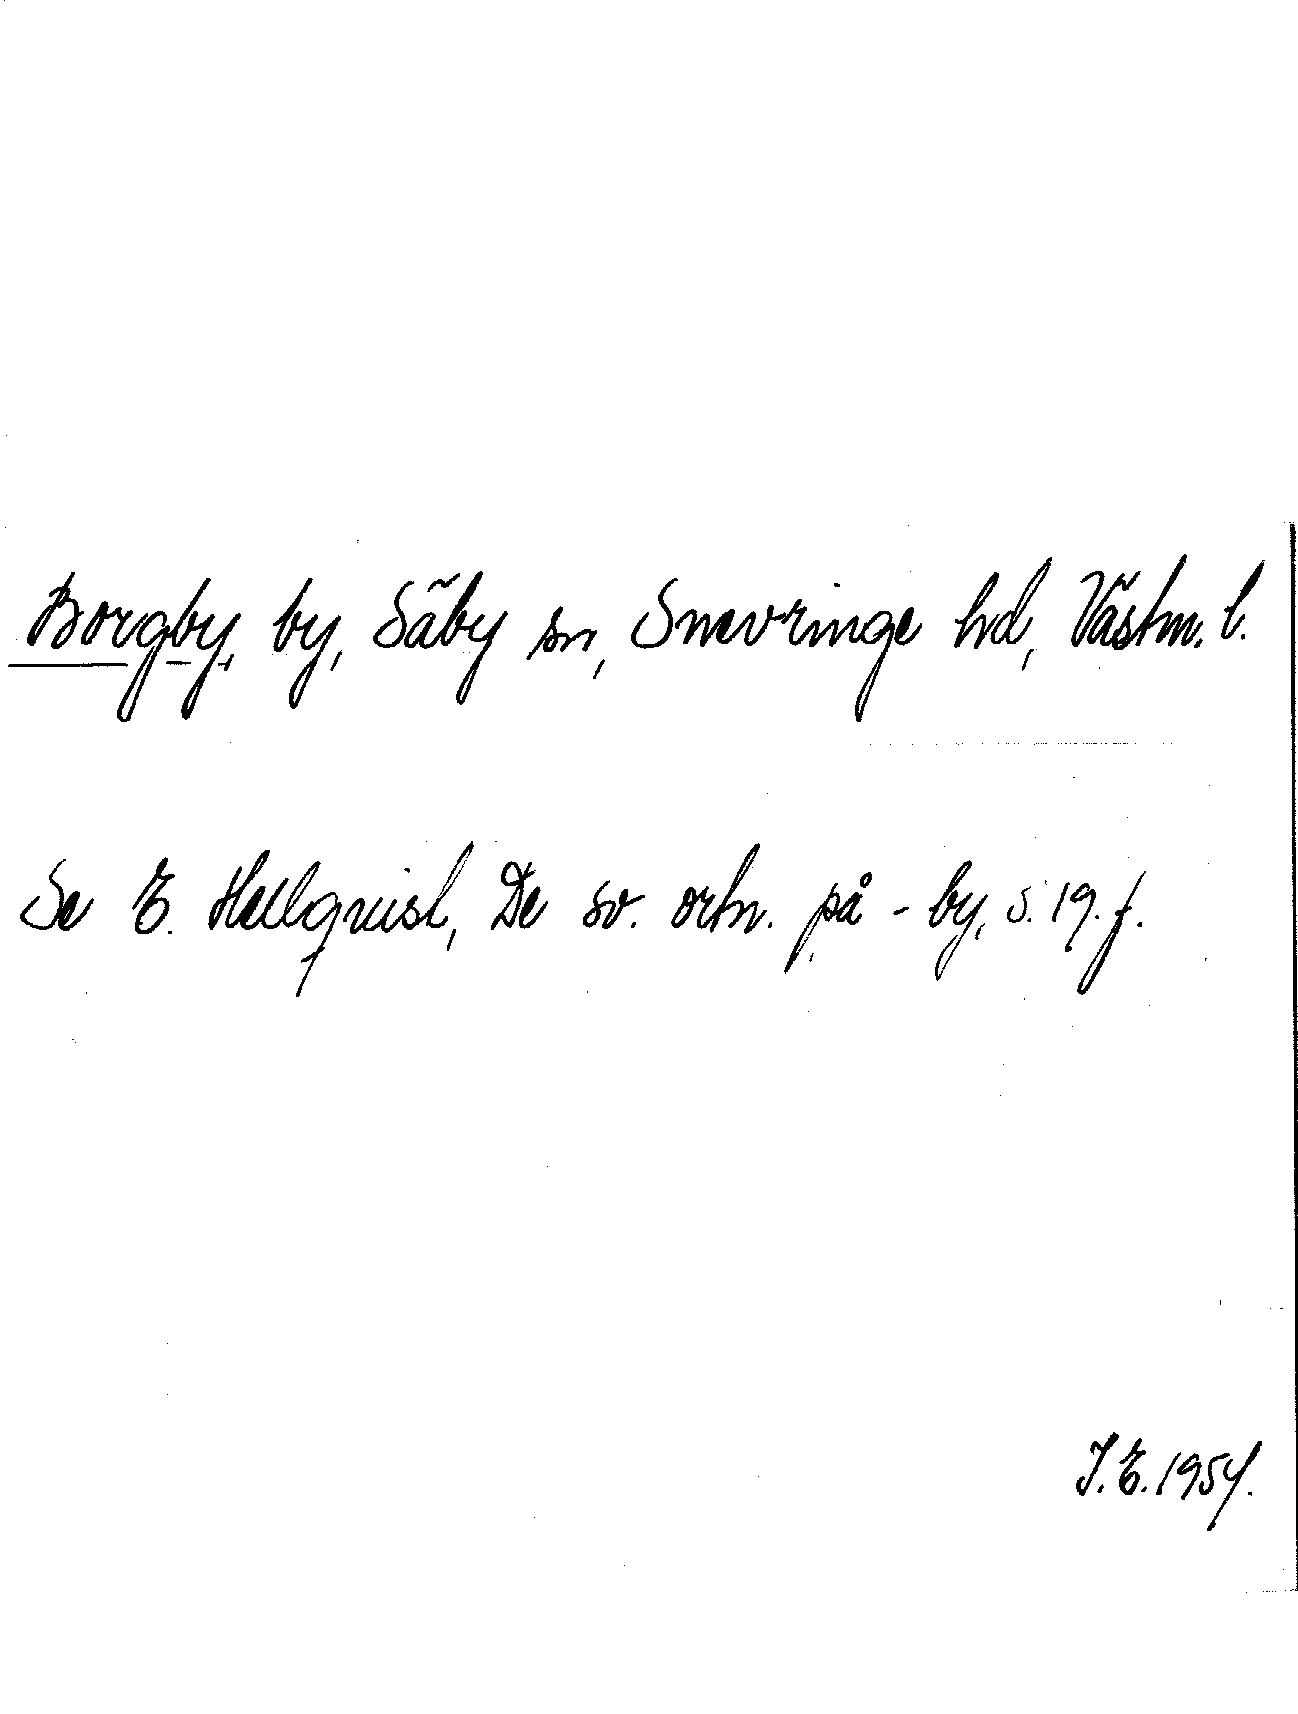 Borgby, by, Säby sn, Snevringe hd, Västm. l.
Se E. Hellquist, De sv. ortn. på -by, s. 19. f.
J. E. 1954.